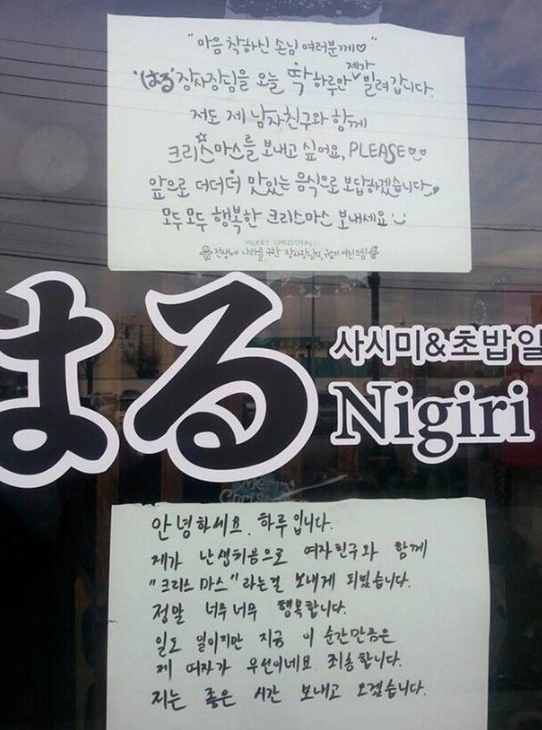 "마음 착하신 손님 여러분께♡"
'はる' 장사장님을 오늘 딱 하루만 제가 빌려갑니다.
저도 제 남자친구와 함께
크리스마스를 보내고 싶어요, PLEASE
앞으로 더더더 맛있는 음식으로 보답하겠습니다.
모두모두 행복한 크리스마스 보내세요
MERRY CHRISTMAS!!
전생에 나라를 구한 장사장님의 여친드림
はる
사시미&초밥 일
Nigiri
Merry
Chris
안녕하세요. 하루입니다.
제가 난생처음으로 여자친구와 함께
"크리스마스"라는걸 보내게 되었습니다.
정말 너무너무 행복합니다.
일도 일이지만 지금 이 순간만큼은
제 여자가 우선이네요 죄송합니다.
저는 좋은 시간 보내고 오겠습니다.